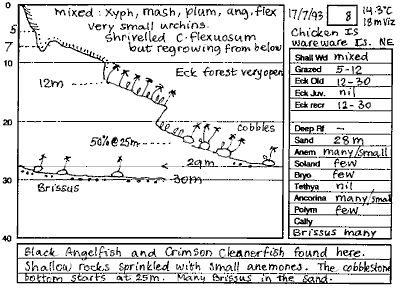 mixed: Xyph, mash, plum, ang. flex
very small urchins.
shrivelled C. flexuosum
but regrowing from below
Eck forest very open
0
5
7
10
20
30
40
12m
50% @ 25m
cobbles
29m
30m
Brissus
17/7/93
8
14.3°C
18m Viz
Chicken Is
wareware Is. NE
Shall Wd mixed
Grazed 5-12
Eck Old 12-30
Eck Juv. nil
Eck recr 12-30
Deep Rf -
Sand 28m
Anem many/small
Soland few
Bryo few
Tethya nil
Ancorina many/small
Polym few
Cally
Brissus many
Black Angelfish and Crimson Cleanerfish found here.
Shallow rocks sprinkled with small anemones. The cobblestone
bottom starts at 25m. Many Brissus in the sand.